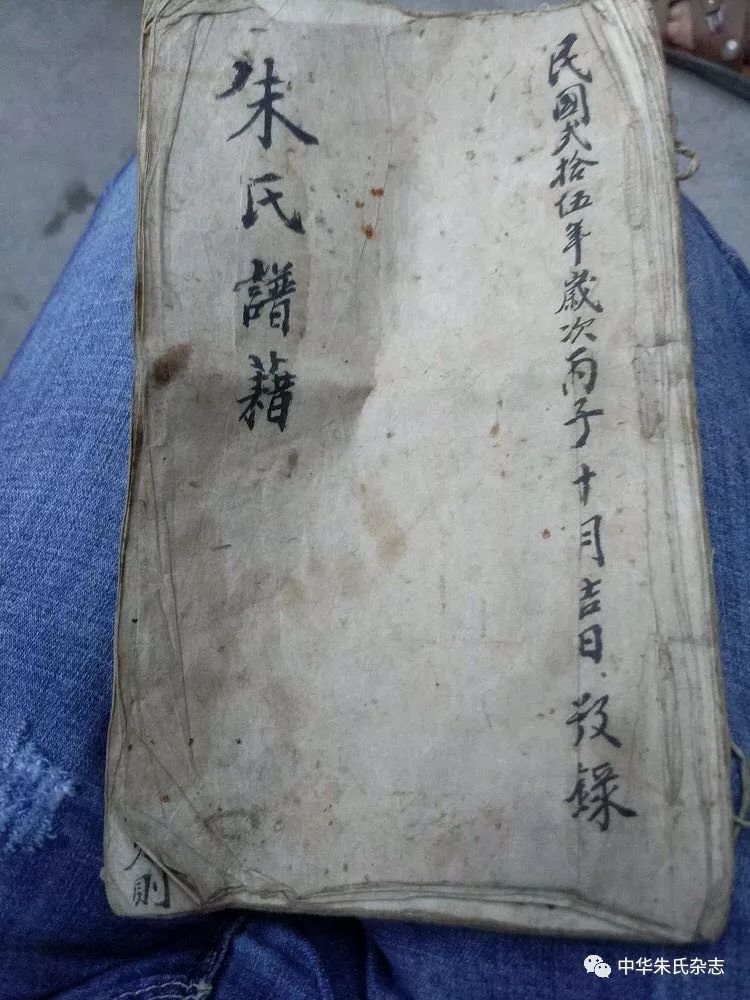 民國弍拾伍年歲次丙子十月吉日
錄
朱氏譜藉
則
中华朱氏杂志